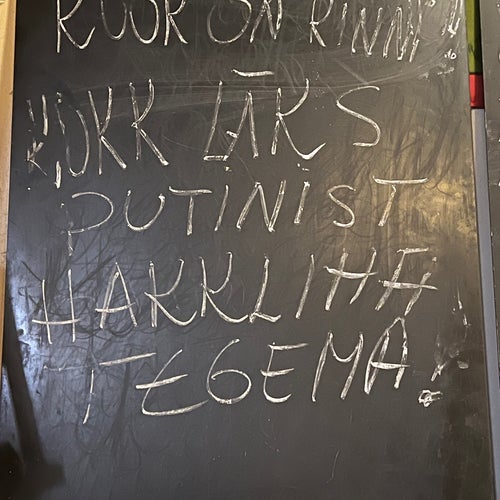 KÖÖK ON KINNI
KOKK LÄKS
PUTINIST
HAKKLIHA
TEGEMA!